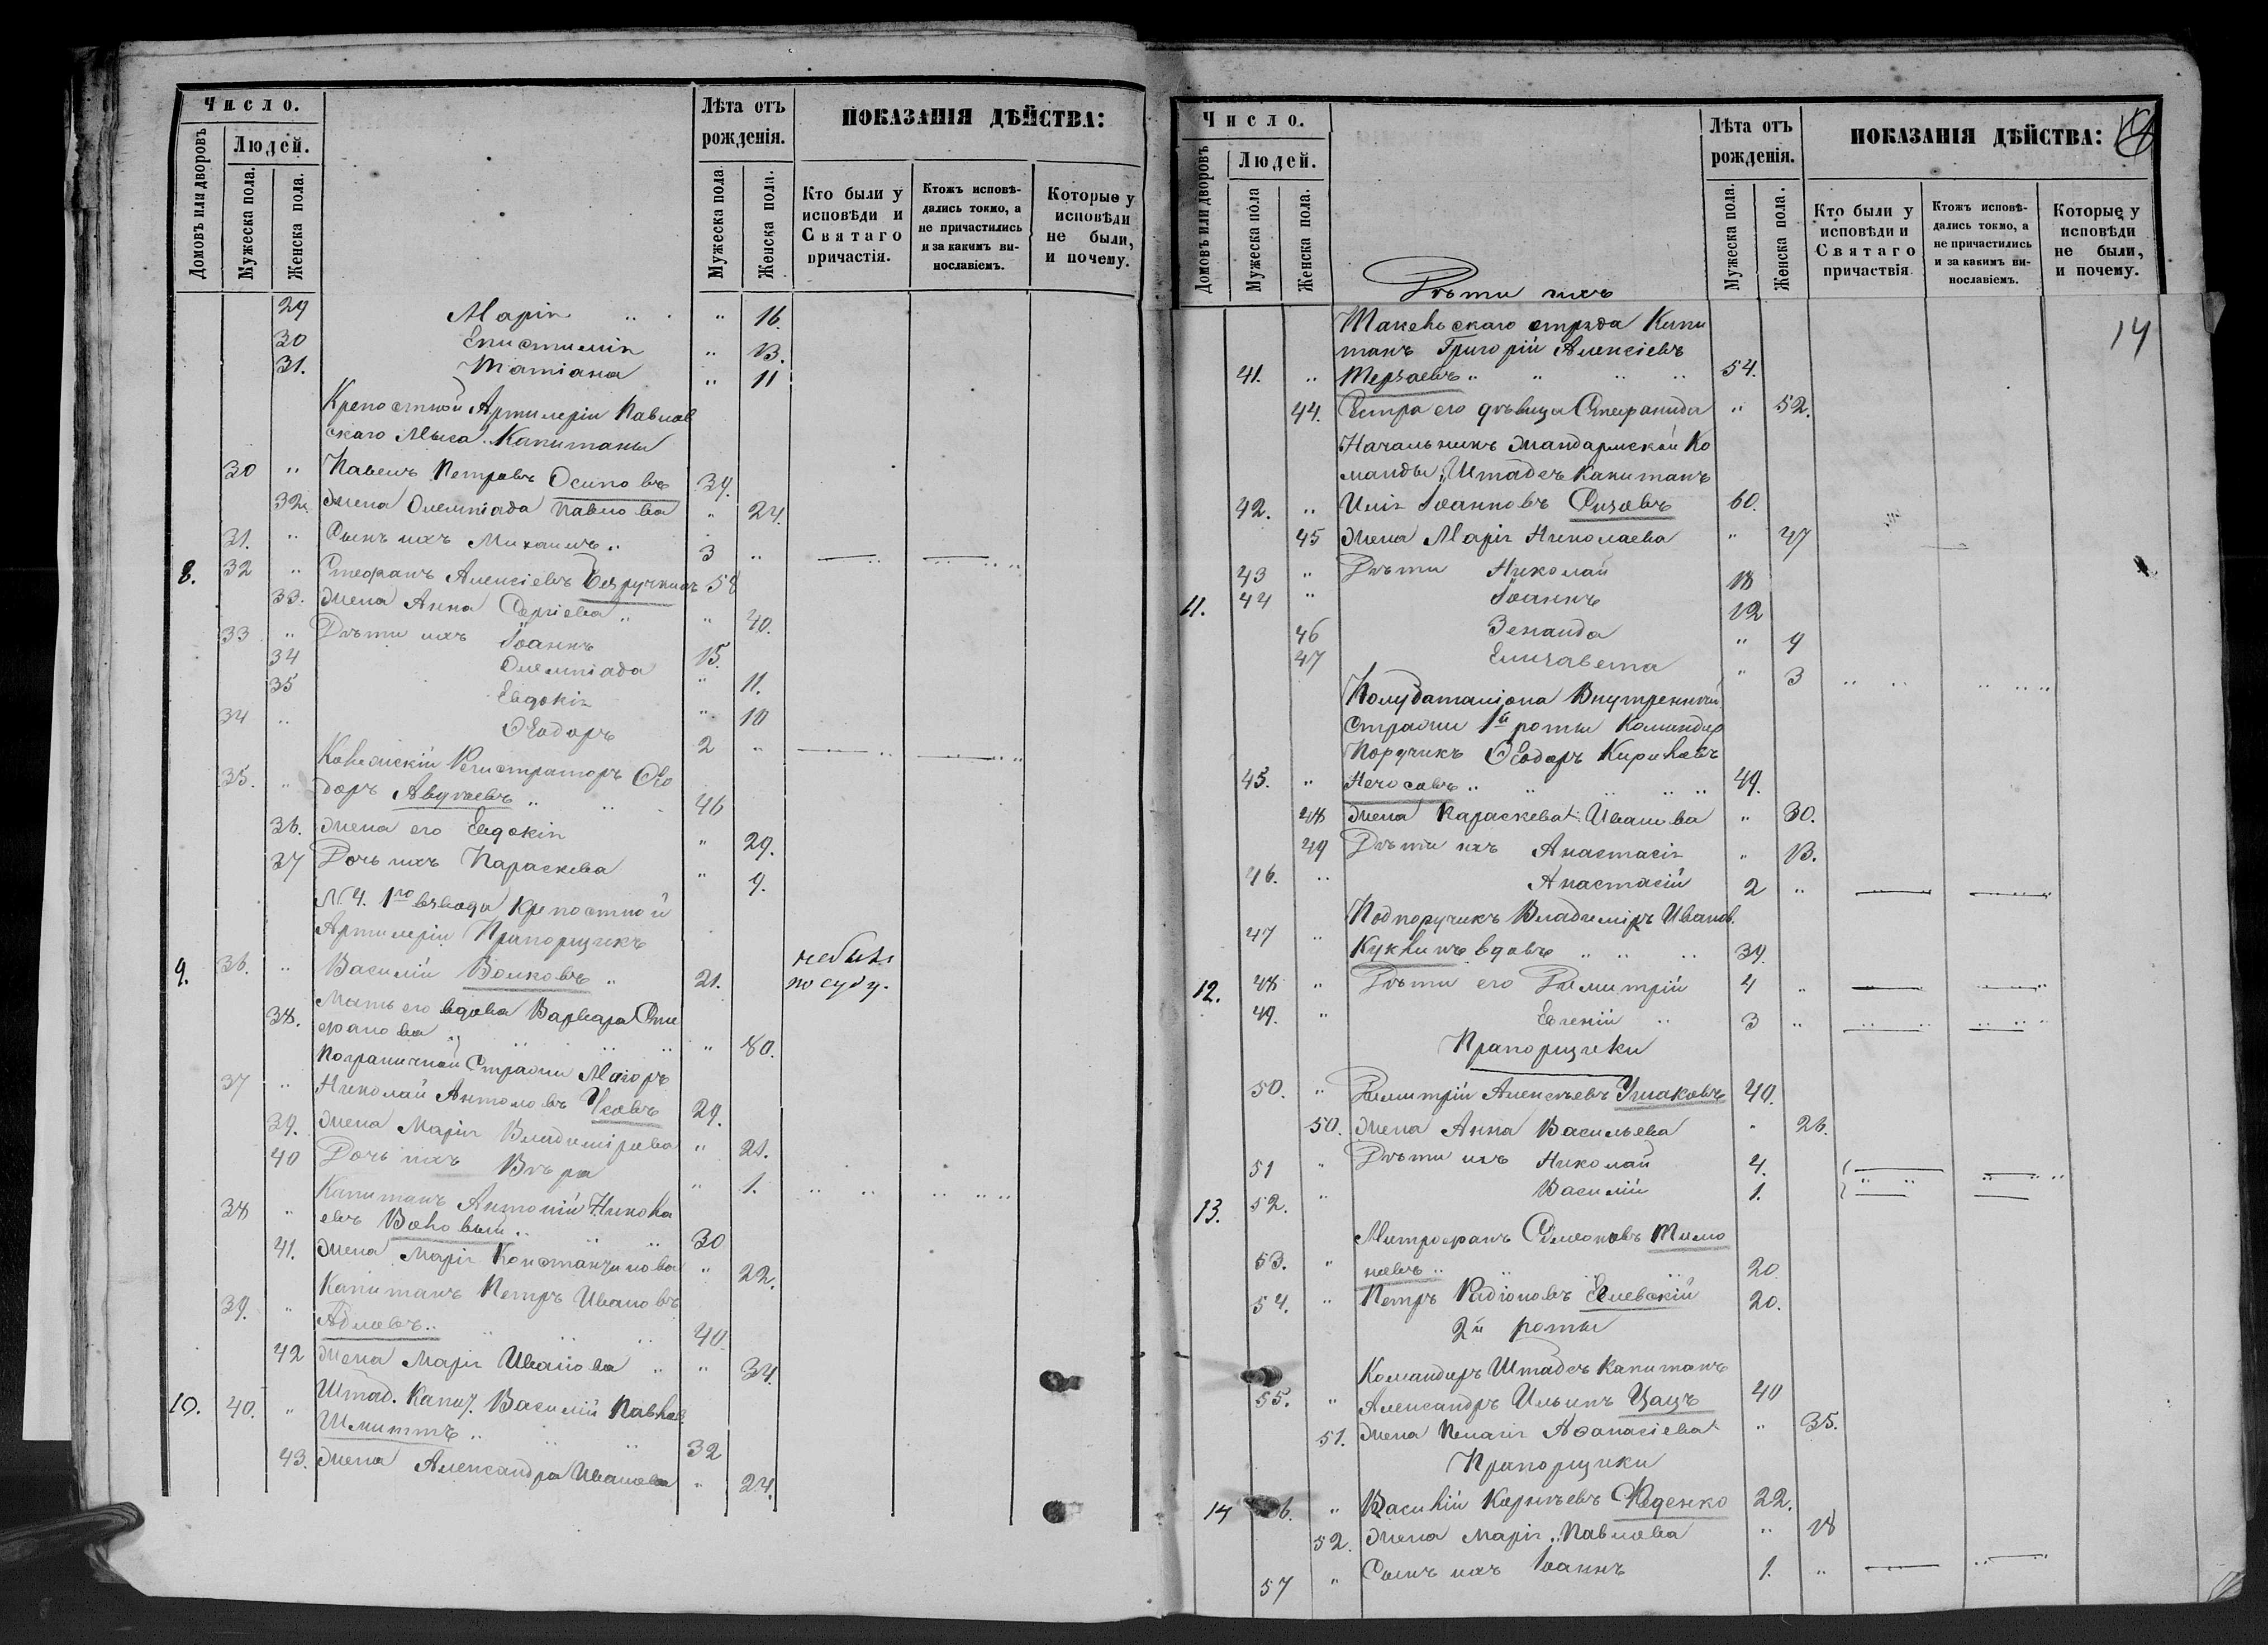 Число.
Лѣта отъ рожденія.
ПОКАЗАНІЯ ДѢЙСТВА:
Домовъ или дворовъ
Людей.
Мужеска пола.
Женска пола.
Мужеска пола
Женска пола.
Кто были у исповѣди и Святаго причастія.
Ктожъ исповѣдались токмо, а не причастились и за какимъ винословіемъ.
Которые у исповѣди не были, и почему.
29 Марія " 16.
30 Епистимія " 13.
31. Татіана " 11
Крепостной Артилеріи Павлов
скаго Мыса. Капитаны
30 " Павелъ Петровъ Осиповъ 39.
32. Жена Олемпіада Павлова " 24.
31. " Сынъ ихъ Михаилъ " 3 "
8. 32 " Стефанъ Алексіевъ Безручкинъ 58
33. Жена Анна Сергіева " " 40.
33 " Дѣти ихъ Іоаннъ 15.
34 Олемпіада " 11.
35 Евдокія " 10
34 " Ѳеодоръ 2 "
Колежскій Регистраторъ Ѳео
35. " доръ 46
36. Жена его Евдокія " 29.
37 Дочь ихъ Параскева " 9.
N 4. 1го взвода Крепостной
Артилеріи Прапорщикъ
9. 36. " Василій Волковъ " 21. небылъ
по суду.
38. Мать его вдова Варвара Сте
фанова " " 80.
Пограничной Стражи Маіоръ
37 " Николай Антоновъ Усовъ 29.
39. Жена Марія Владимірова " 21.
40 Дочь ихъ Вѣра " 1.
Капитанъ Антоній Никола
38 " евъ 30
41. Жена Марія Константинова " 22.
Капитанъ Петръ Ивановъ
39. " 40.
42 Жена Марія Иванова " " 34.
10. 40. " Штаб. Капит. Василій Павлов.
Шмиттъ " 32
43. Жена Александра Иванова " 24.
Число.
Лѣта отъ рожденія.
ПОКАЗАНІЯ ДѢЙСТВА:
Домовъ или дворовъ
Людей.
Мужеска пола
Женска пола.
Мужеска пола.
Женска пола.
Кто были у исповѣди и Святаго причаствія
Ктожъ исповѣдались токмо, а не причастились и за какимъ винословіемъ.
Которые у исповѣди не были, и почему.
14
Дѣти ихъ
отряда Капи
танъ Григорій Алексіевъ
41. " " 54.
44. Сестра его дѣвица Стефанида " 52.
Начальникъ Жандармской Ко
манды, Штабсъ Капитанъ
42. " Илія Іоанновъ 60.
45 Жена Марія Николаева " 47
43 " Дѣти Николай 18
11. 44 " Іоаннъ 12
46 Зенаида " 9
47 Елизавета " 3
Полубаталіона Внутренней
Стражи 1й роты Командир
Поручикъ Ѳеодоръ Кириловъ
45. " " 49.
48 Жена Параскева Иванова " 30.
49 Дѣти ихъ Анастасія " 13.
46. " Анастасій 2 "
Подпоручикъ Владиміръ Иванов.
47 " Куклинъ вдовъ 39.
12. 48 " Дѣти его Димитрій 4 "
49. " Евгеній " 3 "
Прапорщики
50. " Димитрій Алексѣевъ Ушаковъ 40.
50. Жена Анна Васильева " 26.
51 " Дѣти ихъ Николай 4.
13. 52. " Василій 1.
Митрофанъ Симеоновъ Тимо
53. " 20
54. " Петръ Радіоновъ 20.
2й роты
Командиръ Штабсъ Капитанъ
55. " Александръ Ильинъ 40
51. Жена Пелагія Аѳанасіева " 35.
Прапорщики
14 6. " Василій 22.
52. Жена Марія Павлова " 18
57 " Сынъ ихъ Іоаннъ 1. "